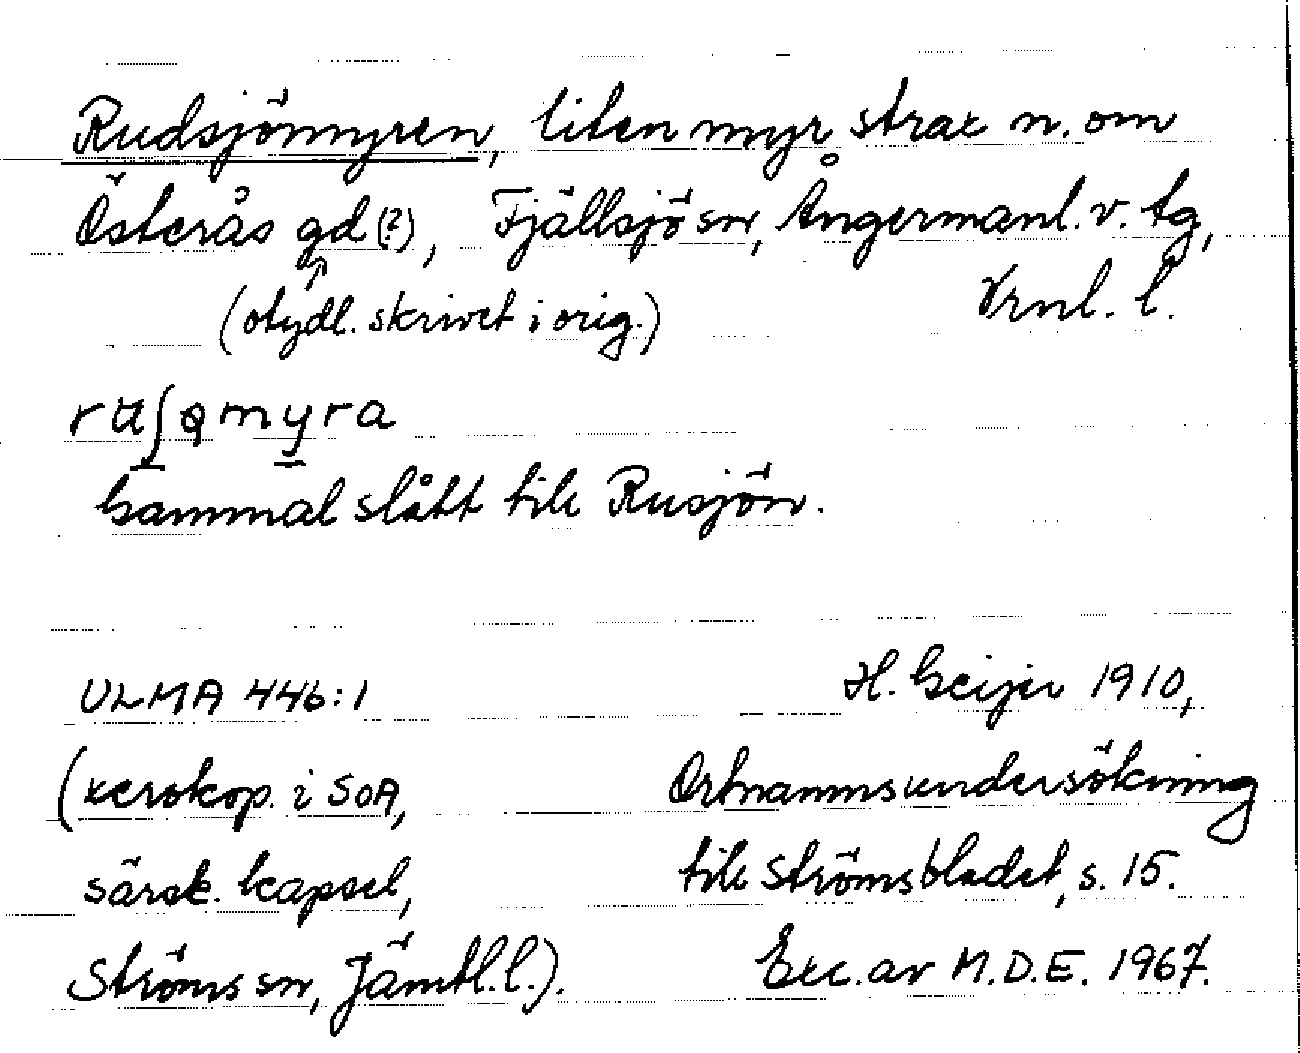 Rudsjömyren, liten myr strax n. om
Österås gd (?), Fjällsjö sn, Ångermanl. v. tg,
(otydl. skrivet i orig.) Vrnl. l.
myra
Gammal slått till Rusjön.
ULMA 446:1 H. Geijer 1910,
(xerokop. i SOA, Ortnamnsundersökning
särsk. kapsel, till Strömsbladet, s. 15.
Ströms sn, Jämtl. l.). Exc. av M.D.E. 1967.